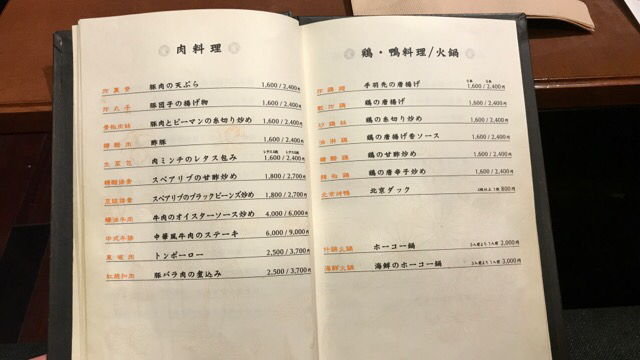 肉料理
豚肉の天ぷら 1,600 / 2,400円
炸丸子 豚団子の揚げ物 1,600 / 2,400円
青椒肉絲 豚肉とピーマンの糸切り炒め 1,600 / 2,400円
糖醋肉 酢豚 1,600 / 2,400円
生菜包 肉ミンチのレタス包み 1,600 / 2,400円
糖醋排骨 スペアリブの甘酢炒め 1,800 / 2,700円
豆豉排骨 スペアリブのブラックビーンズ炒め 1,800 / 2,700円
蠔油牛肉 牛肉のオイスターソース炒め 4,000 / 6,000円
中式牛排 中華風牛肉のステーキ 6,000 / 9,000円
東坡肉 トンポーロー 2,500 / 3,700円
紅焼扣肉 豚バラ肉の煮込み 2,500 / 3,700円
鶏・鴨料理/火鍋
手羽先の唐揚げ 1,600 / 2,400円
鶏の唐揚げ 1,600 / 2,400円
鶏の糸切り炒め 1,600 / 2,400円
油淋鶏 鶏の唐揚げ香ソース 1,600 / 2,400円
糖醋鶏 鶏の甘酢炒め 1,600 / 2,400円
辣椒鶏 鶏の唐辛子炒め 1,600 / 2,400円
北京烤鴨 北京ダック 800円
什錦火鍋 ホーコー鍋 2,000円
海鮮火鍋 海鮮のホーコー鍋 3,000円